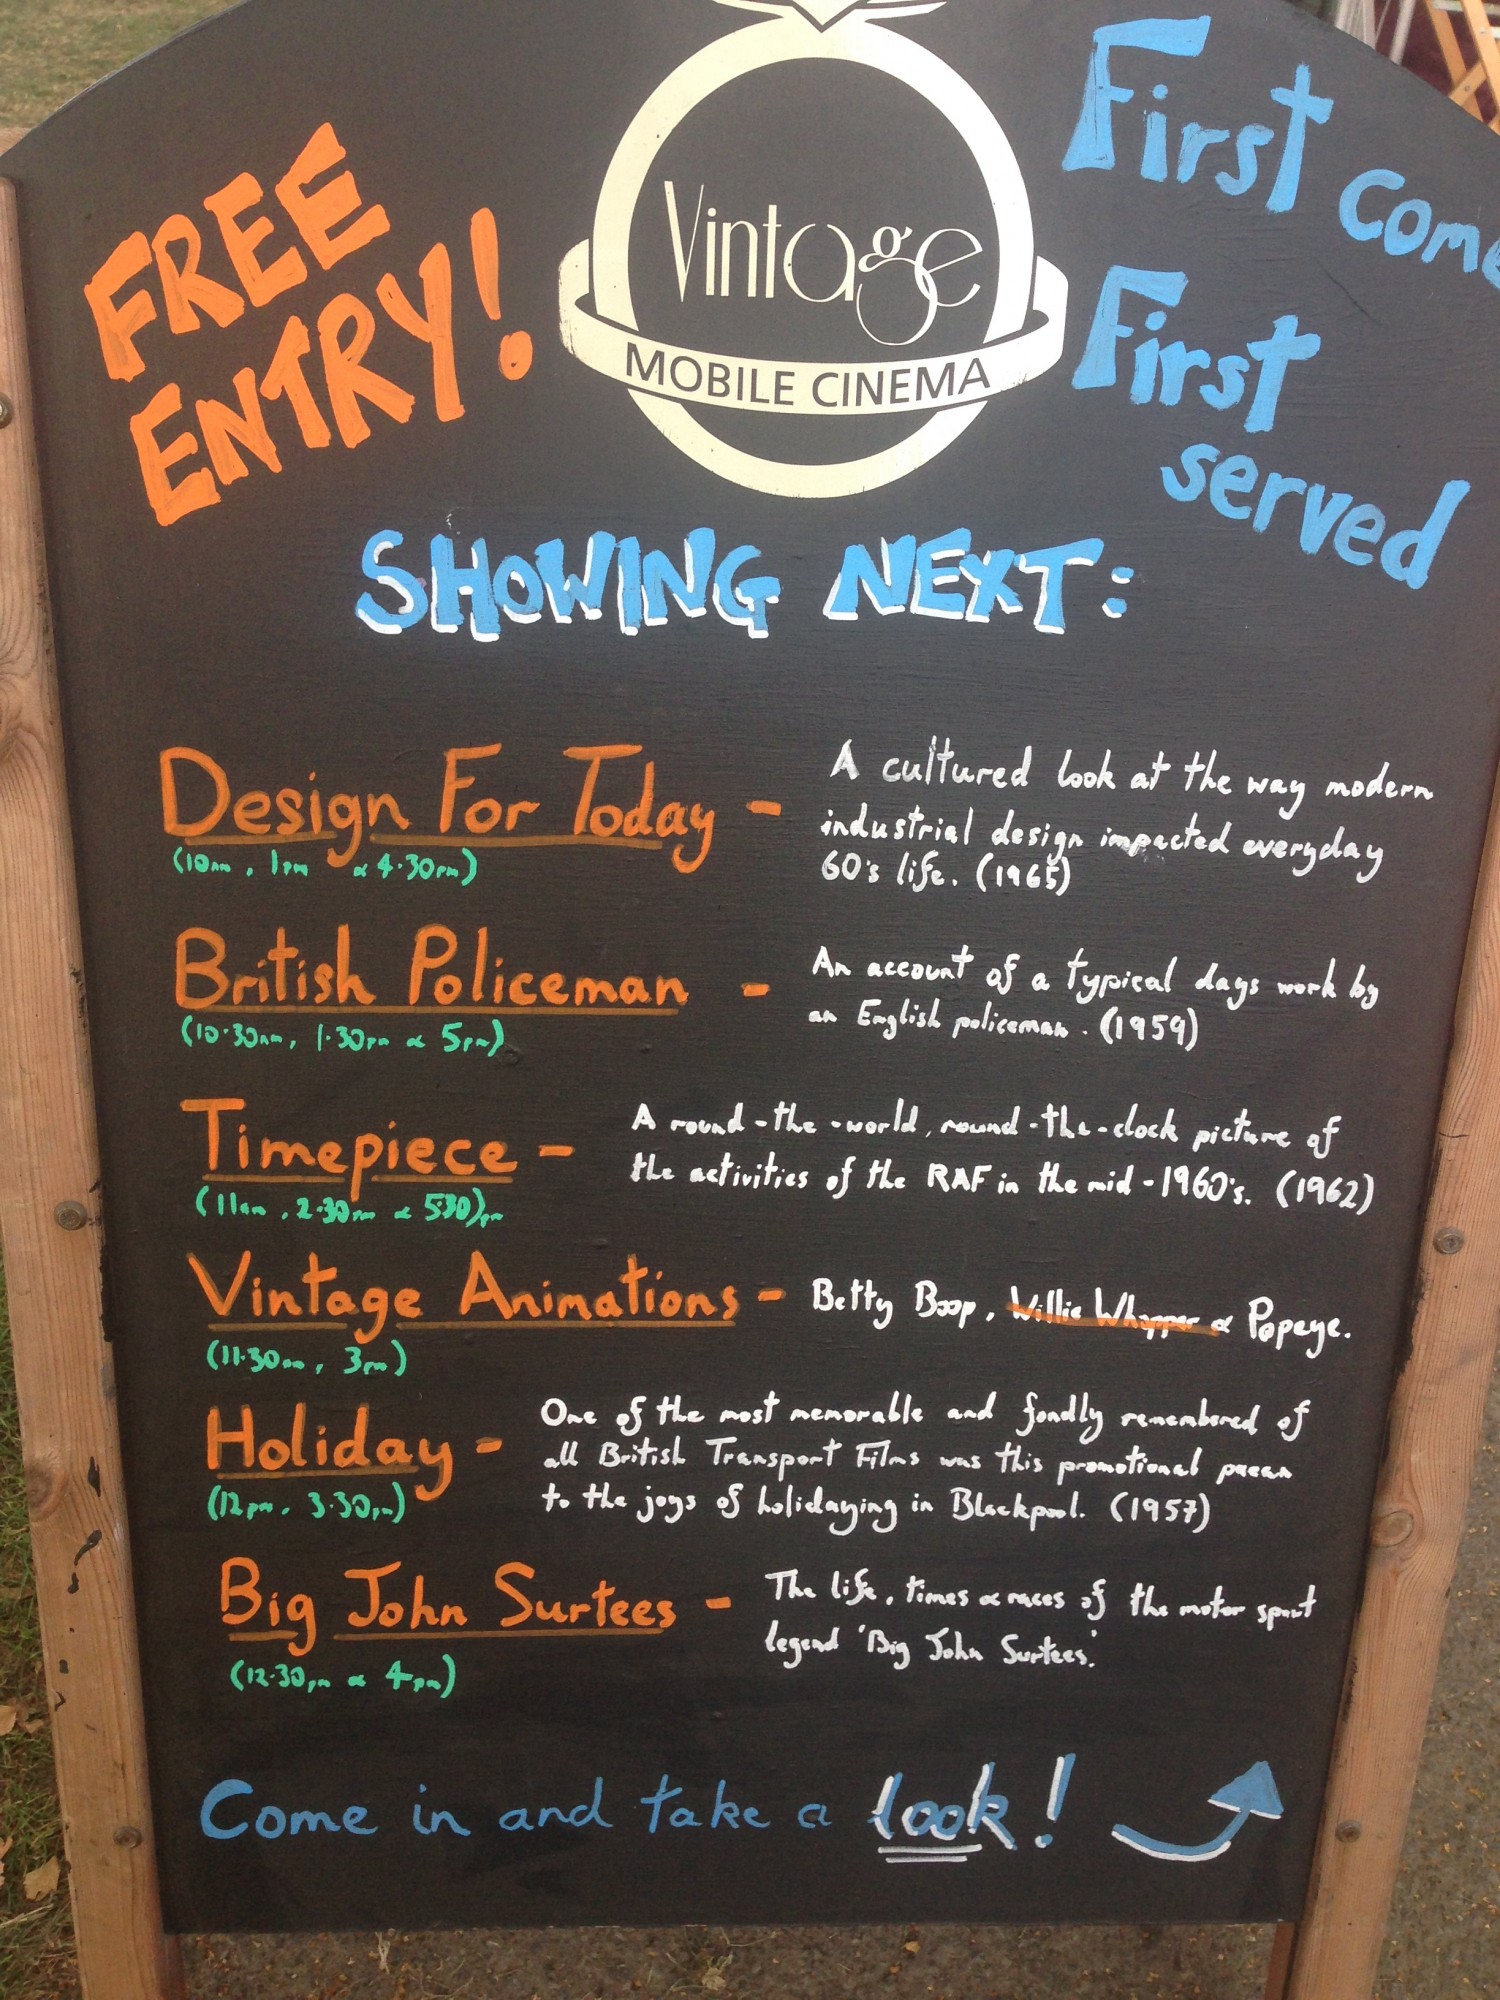 FREE
ENTRY!
Vintage
MOBILE CINEMA
First come
First
served
SHOWING NEXT:
Design For Today -
(10am, 1pm & 4.30pm)
A cultured look at the way modern
industrial design impacted everyday
60's life. (1965)
British Policeman -
(10.30am, 1.30pm & 5pm)
An account of a typical days work by
an English policeman. (1959)
Timepiece -
(11am, 2.30pm & 530)pm
A round-the-world, round-the-clock picture of
the activities of the RAF in the mid-1960's. (1962)
Vintage Animations -
(11.30am, 3pm)
Betty Boop, Willie Whopper & Popeye.
Holiday -
(12pm, 3.30pm)
One of the most memorable and fondly remembered of
all British Transport Films was this promotional paean
to the joys of holidaying in Blackpool. (1957)
Big John Surtees -
(12.30pm & 4pm)
The life, times & races of the motor sport
legend 'Big John Surtees'.
Come in and take a look!